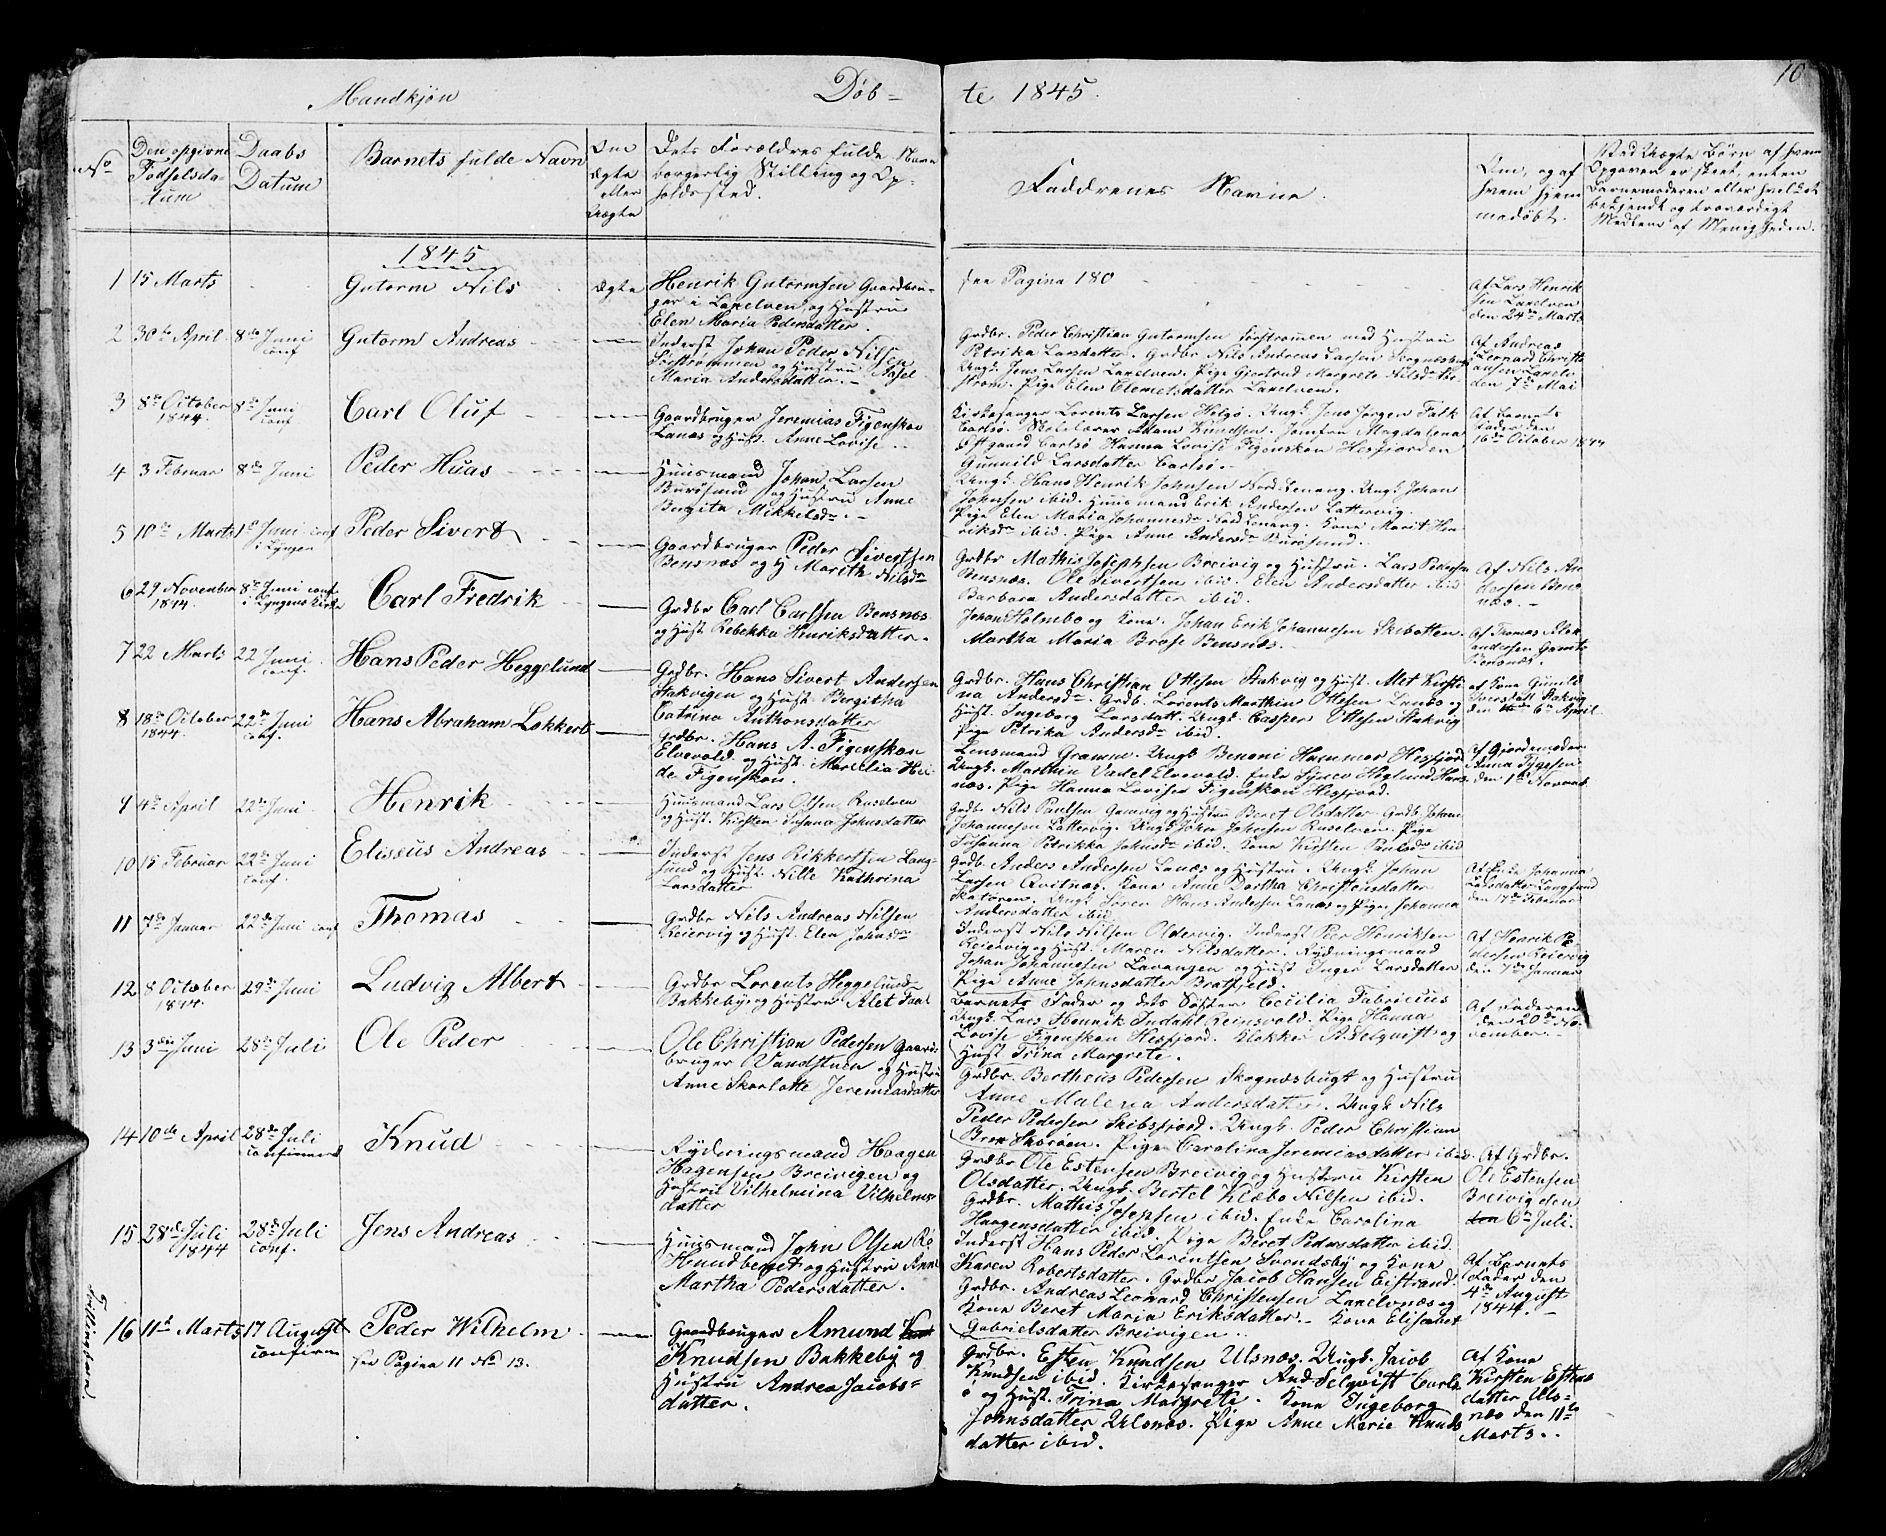 Mandkjøn
Døb-
te 1845.
10
No
Den opgivne
Fødselsda-
tum
Daabs
Datum
Barnets fulde Navn
Om
ægte
eller
uægte
Dets Forældres fulde Navn
borgerlig Stilling og Op-
holdssted.
Faddrenes Navne.
Om, og af
hvem hjem-
medøbt.
Ved uægte Børn af hvem
Opgaven er skeet, enten
Barnemoderen eller hvilket
bekjendt og troværdigt
Medlem af Menigheden.
1845
1 15 Marts
Gutorm Nils
ægte
Henrik Gutormsen Gaardbru-
ger i Lanelven og Hustru
Elen Maria Pedersdatter.
see Pagina 180
Af Lars Henrik
sen Lanelven
den 24de Marts
2 30te April 8de Juni
conf
Gutorm Andreas
Inderst Johan Peder Nilsen
og Hustru
Maria Andersdatter.
Grdbr. Peder Christian Gutormsen med Hustru
Petrika Larsdatter. Grdbr Nils Andreas Larsen
Ungk. Jens Larsen Lanelven. Pige Gjertrud Margrete
Pige Elen Clemetsdatter Lanelven.
Af Andreas
Leonard Christi
ansen
den 7de Mai
3 8de October 8de Juni
1844. conf
Carl Oluf
Gaardbruger Jeremias Figenskov
Lanæs og Hust. Anne Lovise
Kirkesanger Lorents Larsen Helgø. Ungk. Jens Jørgen Falk
Carlsø. Skolelærer Adam Knudsen. Jomfru Magdalena
Østgaard Carlsø Hanna Lovise Figenskou Hesfjorden
Gunnild Larsdatter Carlsø.
Af Barnets
Fader den
16de October 1844
4 3 Februar 8de Juni
Peder Huas
Huusmand Johan Larsen
Burøsund og Hustru Anne
Bergita Mikkelsdr.
Ungk. Hans Henrik Johnsen Nord-Lenang. Ungk. Johan
Johnsen ibid. Huusmand Erik Andersen Lattervig.
Pige Elen Maria Johannesdr Nord Lenang. Kone Marit Hen
riksdr ibid. Pige Anne Andersdr Burøsund.
5 10de Marts 1ste Juni conf
i Lyngen
Peder Sivert
Gaardbruger Peder Sivertsen
Bensnæs og H. Marith Nilsdr
Grdbr Mathis Josephsen Breivig og Hustru. Lars Pedersen
Bensnæs. Ole Sivertsen ibid. Elen Andersdatter ibid
Barbara Andersdatter ibid.
Af Nils An
dersen Bens
næs.
6 29 November 8de Juni conf
1844. i Lyngens Kirke
Carl Fredrik
Grdbr Carl Carlsen Bensnæs
og Hust Rebekka Henriksdatter.
Johan Holmbo og Kone. Johan Erik Johannesen Skibotten.
Martha Maria Brose Bensnæs.
Af Thomas Alex
andersen
Bensnæs.
7 22 Marts 22 Juni
conf.
Hans Peder Heggelund
Grdbr. Hans Sivert Andersen
Stakvigen og Hust. Bergitha
Catrina Anthonsdatter
Grdbr. Hans Christian Ottesen Stakvig og Hust. Alet Kirsti
na Andersdr. Grdb. Lorents Marthin Ottesen Lanes og
Hust. Ingeborg Larsdatt. Ungk. Casper Ottesen Stakvig
Pige Petrika Andersdr ibid.
af Kone Gunild
Stakvig
den 6te April.
8 18de October 22de Juni
1844. conf.
Hans Abraham Lokkert
Grdbr. Hans A. Figenskou
Elvevold og Hust. Marselia Hei-
de Figenskou.
Lensmand Gramm. Ungk Benoni Hammer Hesfjord
Ungk. Marthin Vadel Elvevold. Enke Synev Heglund Hans
næs. Pige Hanna Lovise Figenskou Hesfjord.
Af Gjordemoder
Anna Figgesen
den 1ste Novemb.
9 4de April 22de Juni
Henrik
Huusmand Lars Olsen Ruselven
og Hust. Kirsten Susana Johnsdatter
Grdbr Nils Paulsen Gamvig og Hustru Beret Olsdatter. Grdb Johan
Johannesen Lattervig. Ungk John Johnsen Ruselven. Pige
Susanna Petrikka Johnsdr ibid. Kone Kirsten Paulsdr ibid
10 15 Februar 29de Juni
conf.
Elisæus Andreas
Inderst Jens Rikkertsen Lang-
sund og Hust. Nille Kathrina
Larsdatter
Grdb. Anders Andersen Lanæs og Hustru. Ungk Johan
Larsen Qvitnæs. Kone Anne Dortha Christensdatter
Skatøren. Ungk Søren Hans Andersen Lanæs og Pige Johanna
Andersdatter ibid
Af Enke Johanna
Larsdatter Langsund
den 17de Februar
11 7de Januar 22de Juni conf
Thomas
Grdbr Nils Andreas Nilsen
Reiervig og Hust. Elen Johnsdr
Inderst Nils Nilsen Oldervig. Inderst Peer Henriksen
Reiervig og Hust. Maren Nilsdatter. Rydningsmand
Johan Johannesen Lavangen og Hust Inger Larsdatter
Pige Anne Johnsdatter Bratfjeld.
Af Henrik Pe
dersen Reiervig
den 7de Januar
12 8 October 29de Juni
1844.
Ludvig Albert
Grdbr Lorents Heggelund
Bakkeby og Hustru Alet Faal
Barnets Fader og dets Søster Cecilia Fabricius
Ungk. Lars Henrik Indahl Reinsvold. Pige Hanna
Lovise Figenskou Hesfjord. Klokker A. Selqvist og
Hust Trina Margrete.
Af Faderen
den 20de No
vember
13 3die Juni 28de Juli
Ole Peder
Ole Christian Pedersen Gaard-
bruger Vandstuen og Hustru
Anne Skarlotte Jeremiasdatter
Grdbr. Bertheus Pedersen Skognæsbugt og Hustru
Anne Malena Andersdatter. Ungk Nils
Peder Pedersen Skibsfjord. Ungk. Peder Christian
Pige Carolina Jeremiasdatter ibid.
14 10de April 28de Juli
confirmerd
Knud
Rydningsmand Haagen
Hagensen Breivigen og
Hustru Vilhelmina Vilhelms
datter
Grdbr Ole Estensen Breivig og Hustru Kirsten
Olsdatter. Ungk. Bertel Klæbo Nilsen ibid.
Grdbr. Mathis Josepsen ibid. Enke Carolina
Haagensdatter ibid. Pige Beret Pedersdatter ibid.
Af Grdbr.
Ole Estensen
Breivig den
6te Juli.
15 28de Juli 28de Juli
1844 conf.
Jens Andreas
Huusmand John Olsen
og Hustru Anne
Martha Pedersdatter.
Inderst Hans Peder Lorentsen Svendsby og Kone
Karen Robertsdatter. Grdbr Jacob Hansen Eistrand.
Grdbr. Andreas Leonard Christensen Lanelvnæs og
Kone Beret Maria Eriksdatter. Kone Elisabet
Gabrielsdatter Breivigen.
Af Barnets
Fader den
4de August
1844.
Tvillingbarn
16 11te Marts 17 August
confirm
Peder Wilhelm
see Pagina 11 No 13.
Gaardbruger Amund
Knudsen Bakkeby og
Hustru Andrea Jacobs-
datter.
Grdbr. Esten Knudsen Ulsnæs. Ungk. Jacob
Knudsen ibid. Kirkesanger And. Selqvist Carls
ø og Hust. Trina Margrete. Kone Ingeborg
Johnsdatter Ulsnæs. Pige Anne Marie Knuds
datter ibid.
Af Kone
Kirsten Estens
datter Uls-
næs den 11te
Marts.